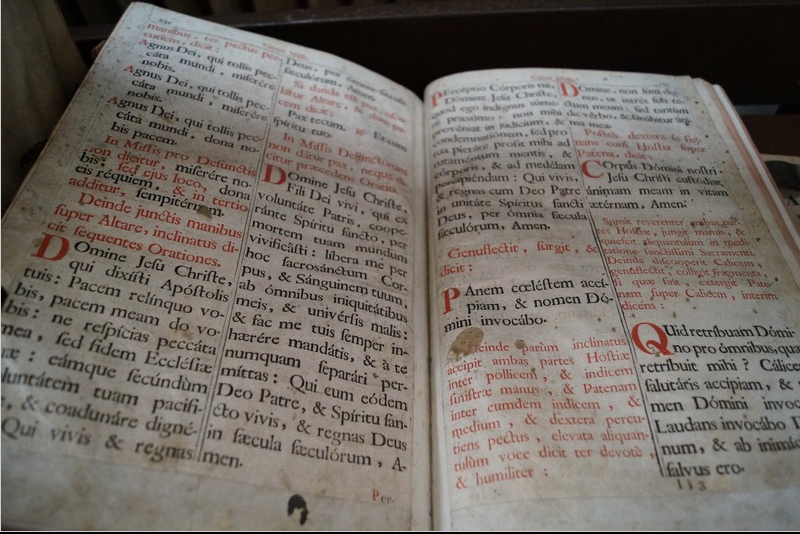 manibus, ter pectus per-
cutiens, dicit:
Agnus Dei, qui tollis pec-
cáta mundi, miserére
nobis.
Agnus Dei, qui tollis pec-
cáta mundi, miserére
nobis.
Agnus Dei, qui tollis pec-
cáta mundi, dona no-
bis pacem.
In Missis pro Defunctis
non dicitur, miserére no-
bis; sed ejus loco, dona
eis réquiem, & in tertio
additur, sempitérnam.
Deinde junctis manibus
super Altare, inclinatus di-
cit sequentes Orationes.
Domine Jesu Christe,
qui dixísti Apóstolis
tuis: Pacem relínquo vo-
bis, pacem meam do vo-
bis: ne respícias peccáta
mea, sed fidem Ecclésiæ
tuæ: eámque secúndùm
voluntátem tuam pacifi-
, & coadunáre digné-
Qui vivis & regnas
Deus, per
sæculórum, Amen.
Si
Altare,
dicit:
Pax tecum. Et cum
spíritu tuo.
In Missis Defunctorum
non datur pax, neque di-
citur præcedens Oratio.
Domine Jesu Christe,
Fili Dei vivi, qui ex
voluntáte Patris, coope-
ránte Spíritu sancto, per
mortem tuam mundum
vivificásti: líbera me per
hoc sacrosánctum Cor-
pus, & Sánguinem tuum,
ab ómnibus iniquitátibus
meis, & univérsis malis:
& fac me tuis semper in-
hærére mandátis, & à te
numquam separári per-
míttas: Qui cum eódem
Deo Patre, & Spíritu san-
cto vivis, & regnas Deus
in sæcula sæculórum, A-
men.
Per-
Percéptio Córporis tui,
Dómine Jesu Christe,
quod ego indígnus súme-
re præsúmo non mihi
provéniat in judícium, &
condemnatiónem, sed pro
tua pietáte prosit mihi ad
tutaméntum mentis, &
córporis, & ad medélam
percipiéndam: Qui vivis,
& regnas cum Deo Patre
in unitáte Spíritus sancti
Deus, per ómnia sæcula
sæculórum, Amen.
Genuflectit, surgit, &
dicit:
PAnem cœléstem accí-
piam, & nomen Dó-
mini invocábo.
Deinde parùm inclinatus
accipit ambas partes Hostiæ
inter pollicem, & indicem
sinistræ manus, & Patenam
inter eumdem indicem, &
medium, & dextera percu-
tiens pectus, elevata aliquan-
tulùm voce dicit ter devotè,
& humiliter:
Domine, non sum dig-
nus, ut intres sub te-
ctum meum: sed tantùm
dic verbo, & sanábitur án-
ma mea.
Postea dextera se sig-
nans cum Hostia super
Patena, dicit:
COrpus Dómini nostri
Jesu Christi custódiat
ánimam meam in vitam
ætérnam, Amen.
Sumit reverenter ambas par-
tes Hostiæ, jungit manus, &
quiescit aliquantulum in medi-
tatione sanctissimi Sacramenti.
Deinde discooperit Calicem,
genuflectit, colligit fragmenta,
si quæ sint, extergit Pate-
nam super Calicem, interim
dicens:
QUid retríbuam Dómi-
no pro ómnibus, quæ
retríbuit mihi? Cálicem
salutáris accípiam, & no-
men Dómini invoc
Laudans invocábo D
num, & ab inimíc
salvus ero.